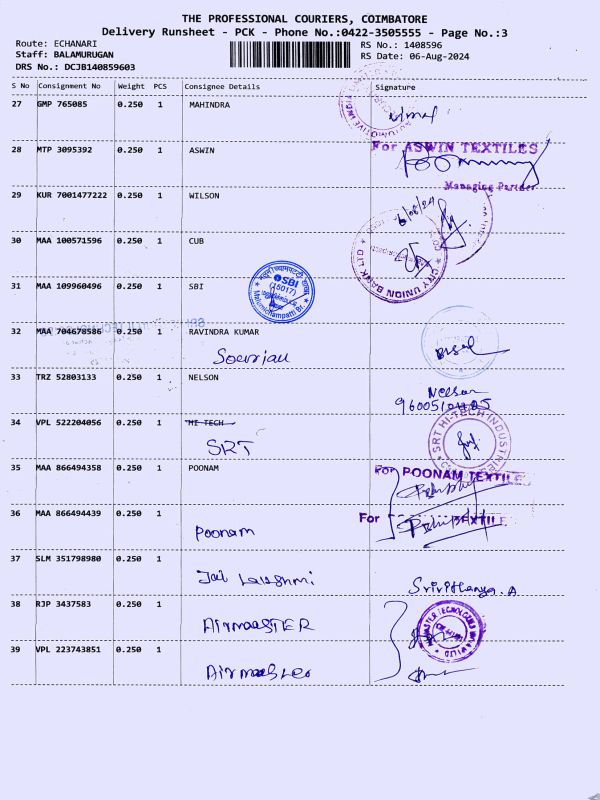 THE PROFESSIONAL COURIERS, COIMBATORE
Delivery Runsheet - PCK - Phone No.:0422-3505555 - Page No.:3
Route: ECHANARI
RS No.: 1408596
Staff: BALAMURUGAN
RS Date: 06-Aug-2024
DRS No.: DCJB140859603
S No Consignment No Weight PCS Consignee Details Signature
27 GMP 765085 0.250 1 MAHINDRA
28 MTP 3095392 0.250 1 ASWIN
For ASWIN TEXTILES
Managing Partner
29 KUR 7001477222 0.250 1 WILSON
6/08/24
30 MAA 100571596 0.250 1 CUB
CITY UNION BANK LTD
31 MAA 109960496 0.250 1 SBI
SBI
(15017)
Malumichampatti Br.
32 MAA 704678586 0.250 1 RAVINDRA KUMAR
33 TRZ 52803133 0.250 1 NELSON
Nelson
34 VPL 522204506 0.250 1 HI TECH
SRT
SRT HI-TECH INDUSTRIES
35 MAA 866494358 0.250 1 POONAM
For POONAM TEXTILE
36 MAA 866494439 0.250 1
Poonam
For
37 SLM 351798980 0.250 1
Jai Lakshmi
Srivithanya.A
38 RJP 3437583 0.250 1
AIRmaaSTER
39 VPL 223743851 0.250 1